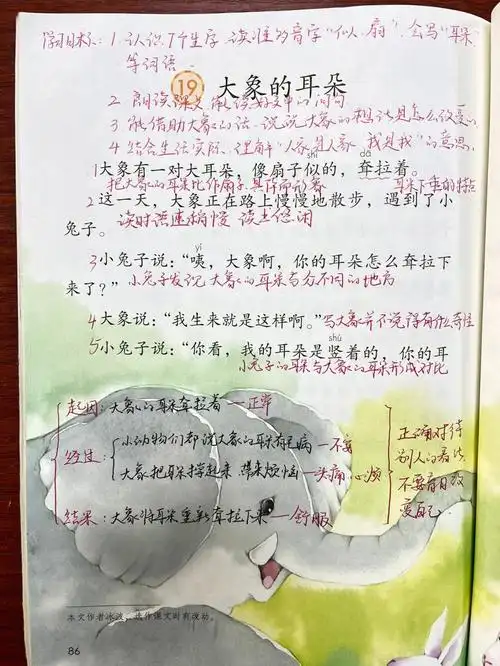 学习目标：1.认识7个生字，读准多音字“似、扇”，会写“耳朵”
等词语。
19 大象的耳朵
2 朗读课文，能读好文中的问句
3 能借助大象的话，说说大象的想法是怎么改变的
4 结合生活实际，理解“人家是人家，我是我”的意思。
shì dā
1大象有一对大耳朵，像扇子似的，耷拉着。
把大象的耳朵比作扇子，具体而形象 耳朵下垂的特点
2这一天，大象正在路上慢慢地散步，遇到了小
兔子。 读时语速稍慢 读出悠闲
yí
3小兔子说：“咦，大象啊，你的耳朵怎么耷拉下
来了？” 小兔子发现大象的耳朵与众不同的地方
4大象说：“我生来就是这样啊。” 写大象并不觉得有什么奇怪
shù
5小兔子说：“你看，我的耳朵是竖着的，你的耳
小兔子的耳朵与大象的耳朵形成对比
起因：大象的耳朵耷拉着 — 正常
经过： 小动物们都说大象的耳朵有毛病 — 不安
大象把耳朵撑起来，带来烦恼 — 头痛、心烦
结果：大象将耳朵重新耷拉下来 — 舒服
正确对待
别人的看法
不要盲目改
变自己
本文作者冰波，选作课文时有改动。
86